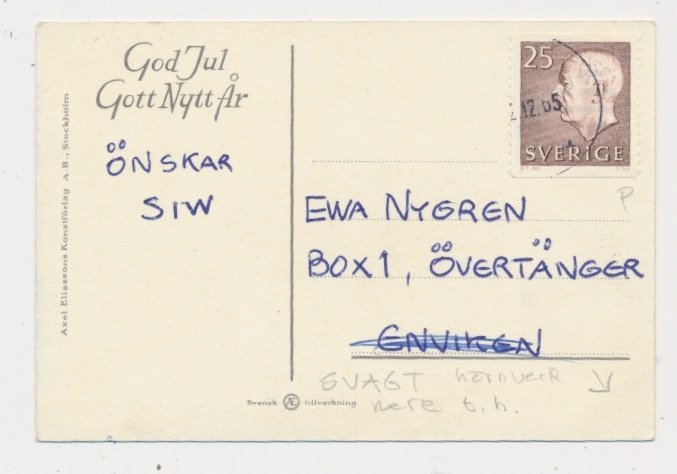 God Jul
Gott Nytt År
ÖNSKAR
SIW
Axel Eliassons Konstförlag A.B., Stockholm
25
.12.65
SVERIGE
P
EWA NYGREN
BOX 1, ÖVERTÄNGER
ENVIKEN
SVAGT hörnveck
nere t.h.
Svensk Æ tillverkning